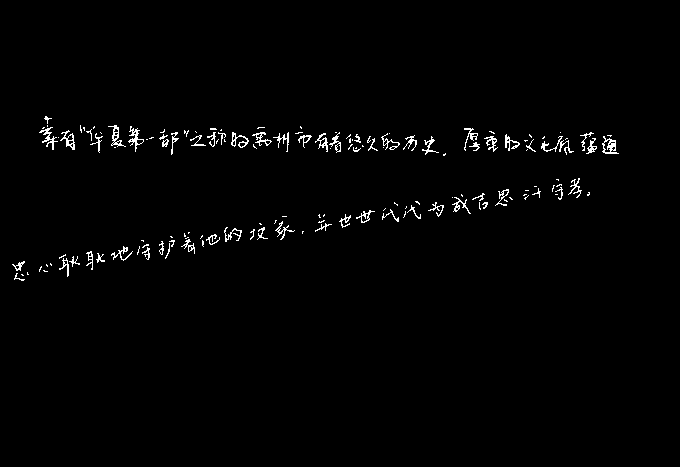 素有"华夏第一都"之称的禹州市有着悠久的历史,厚重的文化底蕴。
忠心耿耿地守护着他的坟冢,并世世代代为成吉思汗守孝。